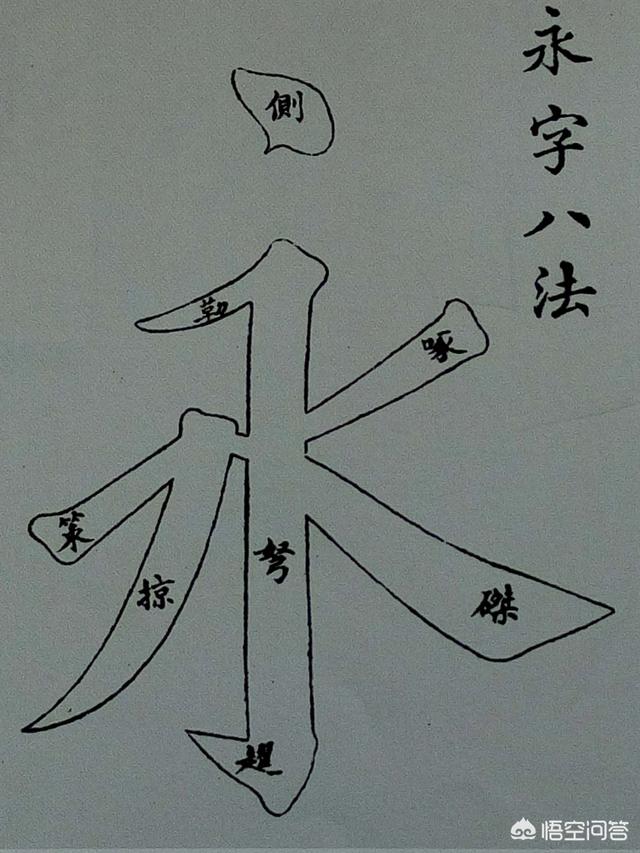 永字八法
側
勒
啄
策
掠
努
磔
趯
悟空问答